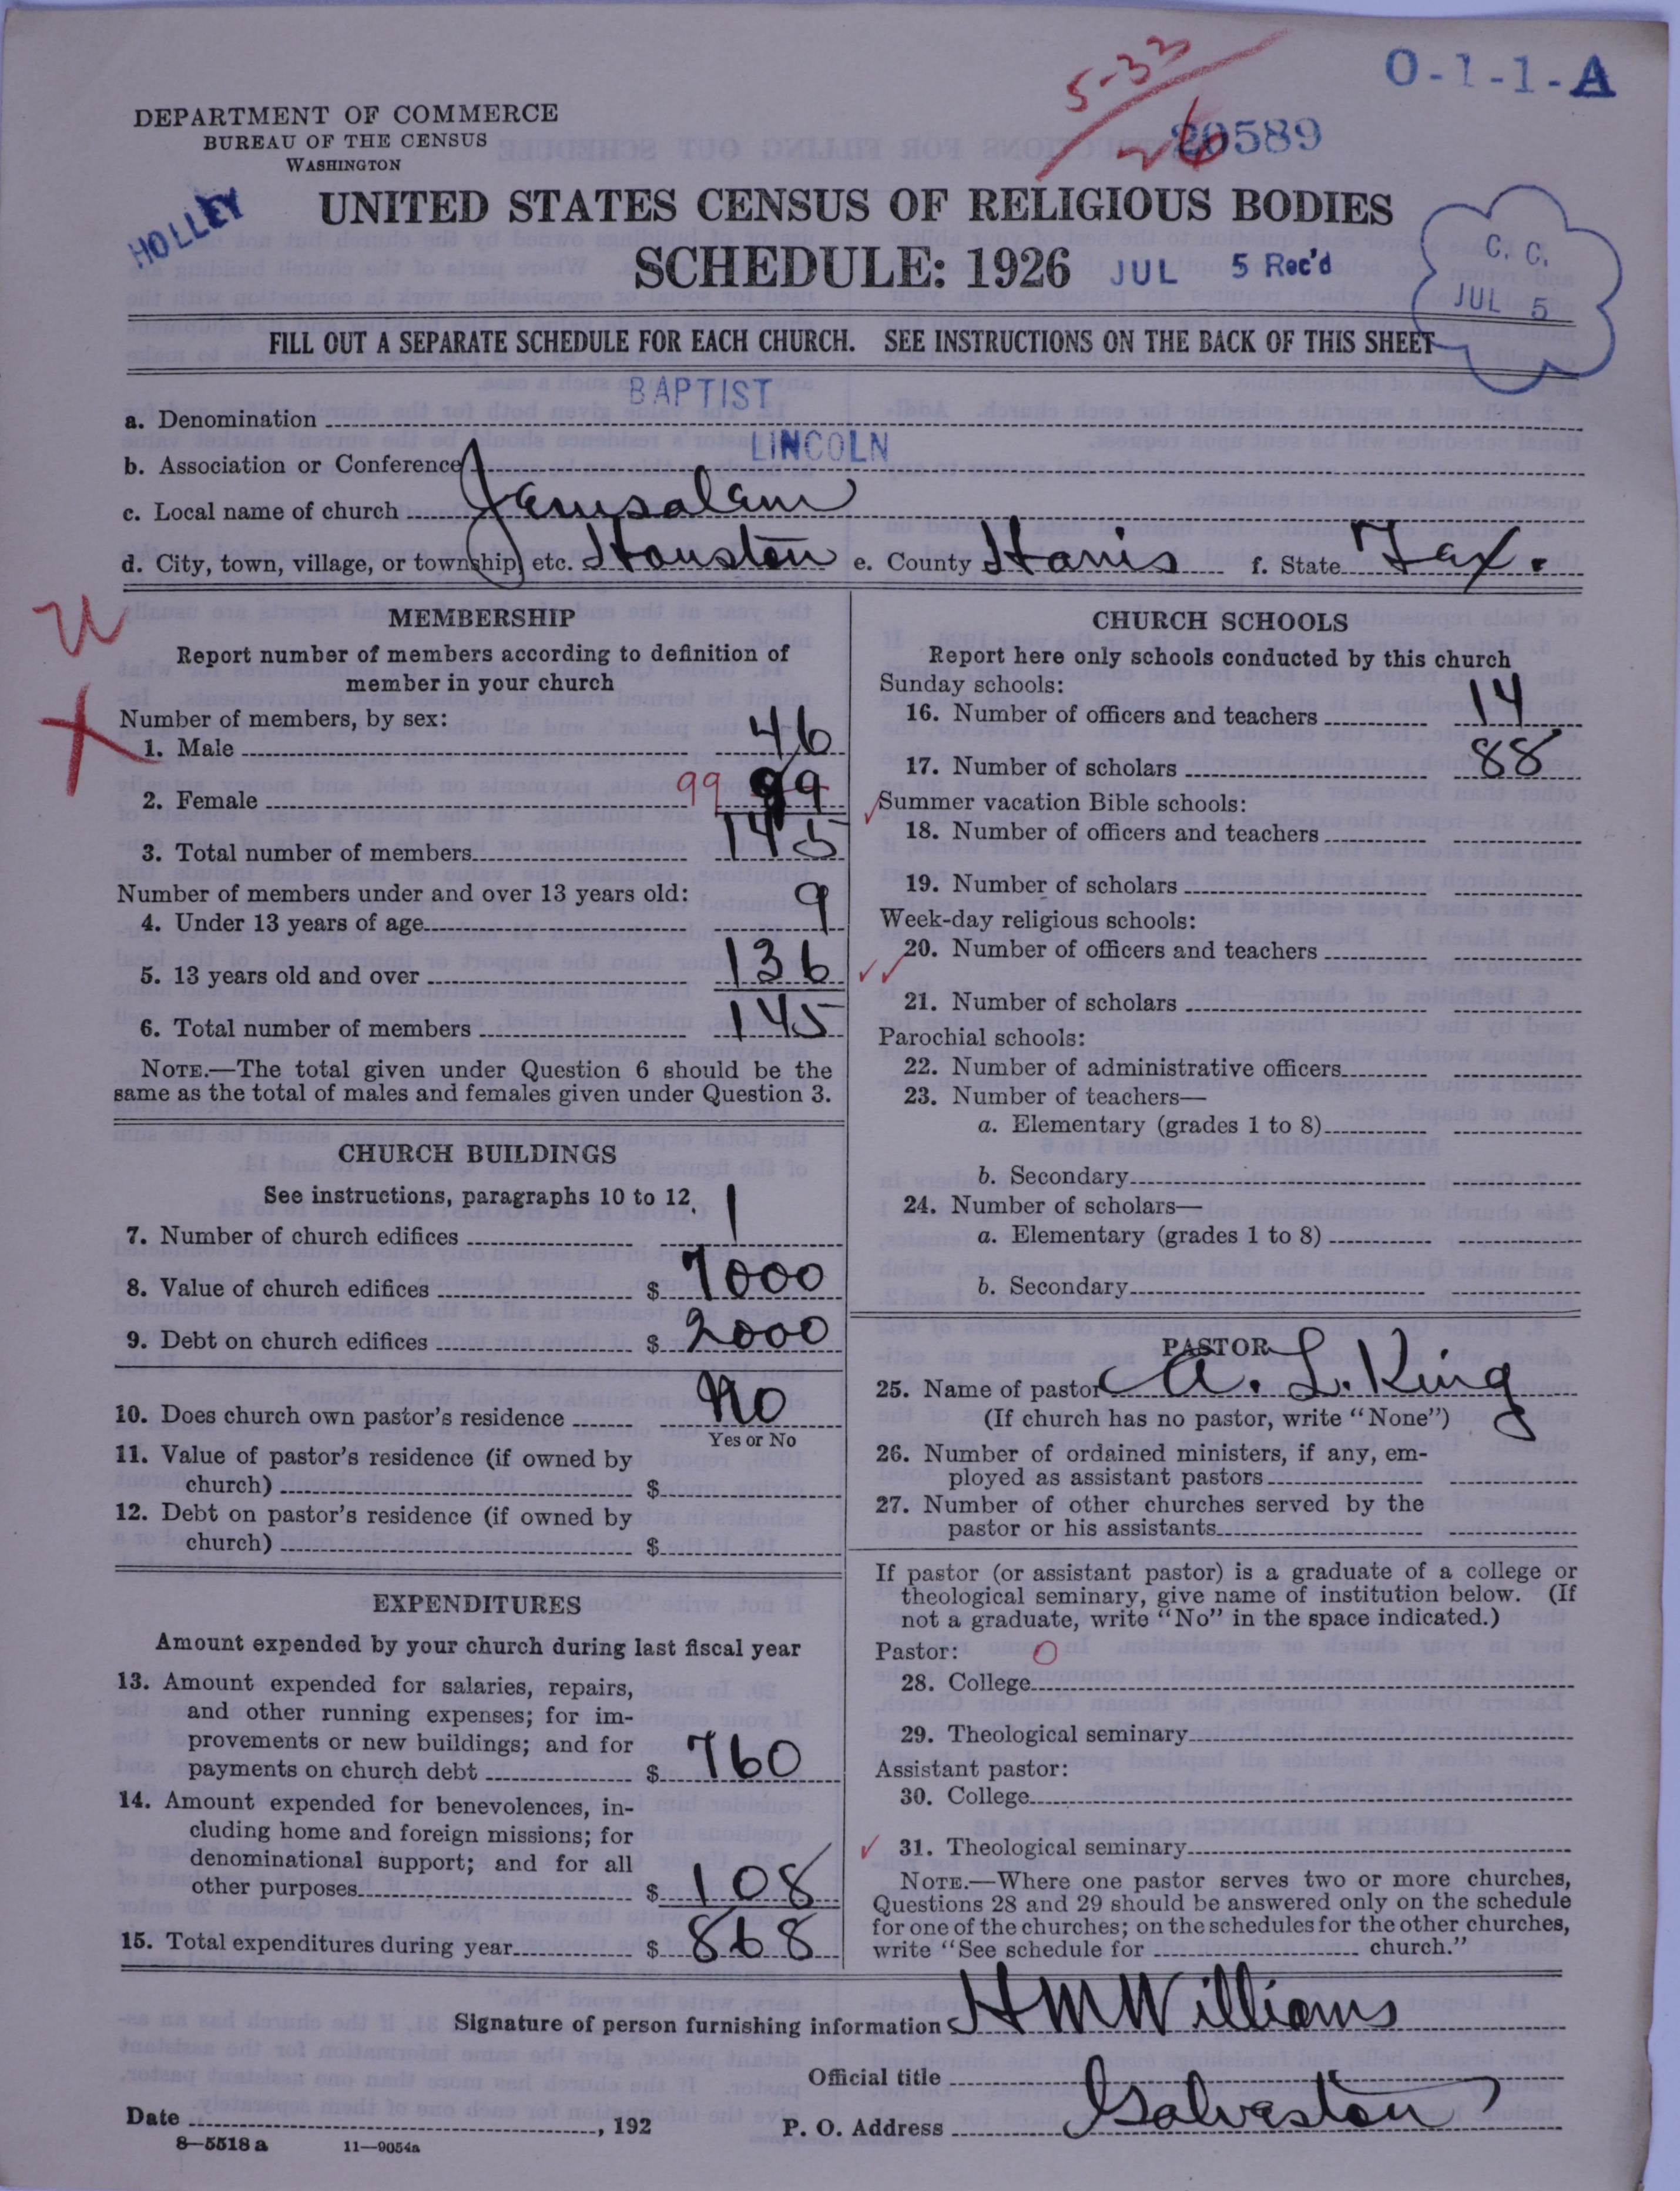 O-1-1-A
5-33
26
20589
DEPARTMENT OF COMMERCE
BUREAU OF THE CENSUS
WASHINGTON
HOLLEY
UNITED STATES CENSUS OF RELIGIOUS BODIES
SCHEDULE: 1926 JUL 5 Rec'd
C. C.
JUL 5
FILL OUT A SEPARATE SCHEDULE FOR EACH CHURCH. SEE INSTRUCTIONS ON THE BACK OF THIS SHEET
BAPTIST
a. Denomination
LINCOLN
b. Association or Conference
c. Local name of church Jerusalem
d. City, town, village, or township, etc. Houston e. County Harris f. State Tex.
MEMBERSHIP
Report number of members according to definition of
member in your church
Number of members, by sex:
1. Male 46
2. Female 99 99
3. Total number of members 145
Number of members under and over 13 years old:
4. Under 13 years of age 9
5. 13 years old and over 136
6. Total number of members 145
NOTE.—The total given under Question 6 should be the
same as the total of males and females given under Question 3.
CHURCH BUILDINGS
See instructions, paragraphs 10 to 12
7. Number of church edifices 1
8. Value of church edifices $ 7000
9. Debt on church edifices $ 2000
10. Does church own pastor's residence No
Yes or No
11. Value of pastor's residence (if owned by
church) $
12. Debt on pastor's residence (if owned by
church) $
EXPENDITURES
Amount expended by your church during last fiscal year
13. Amount expended for salaries, repairs,
and other running expenses; for im-
provements or new buildings; and for
payments on church debt $ 760
14. Amount expended for benevolences, in-
cluding home and foreign missions; for
denominational support; and for all
other purposes $ 108
15. Total expenditures during year $ 868
CHURCH SCHOOLS
Report here only schools conducted by this church
Sunday schools:
16. Number of officers and teachers 14
17. Number of scholars 88
Summer vacation Bible schools:
18. Number of officers and teachers
19. Number of scholars
Week-day religious schools:
20. Number of officers and teachers
21. Number of scholars
Parochial schools:
22. Number of administrative officers
23. Number of teachers—
a. Elementary (grades 1 to 8)
b. Secondary
24. Number of scholars—
a. Elementary (grades 1 to 8)
b. Secondary
PASTOR
25. Name of pastor A. L. King
(If church has no pastor, write "None")
26. Number of ordained ministers, if any, em-
ployed as assistant pastors
27. Number of other churches served by the
pastor or his assistants
If pastor (or assistant pastor) is a graduate of a college or
theological seminary, give name of institution below. (If
not a graduate, write "No" in the space indicated.)
Pastor: O
28. College
29. Theological seminary
Assistant pastor:
30. College
31. Theological seminary
NOTE.—Where one pastor serves two or more churches,
Questions 28 and 29 should be answered only on the schedule
for one of the churches; on the schedules for the other churches,
write "See schedule for church."
Signature of person furnishing information H M Williams
Official title
Date , 192 P. O. Address Galveston
8—5518 a 11—9054a